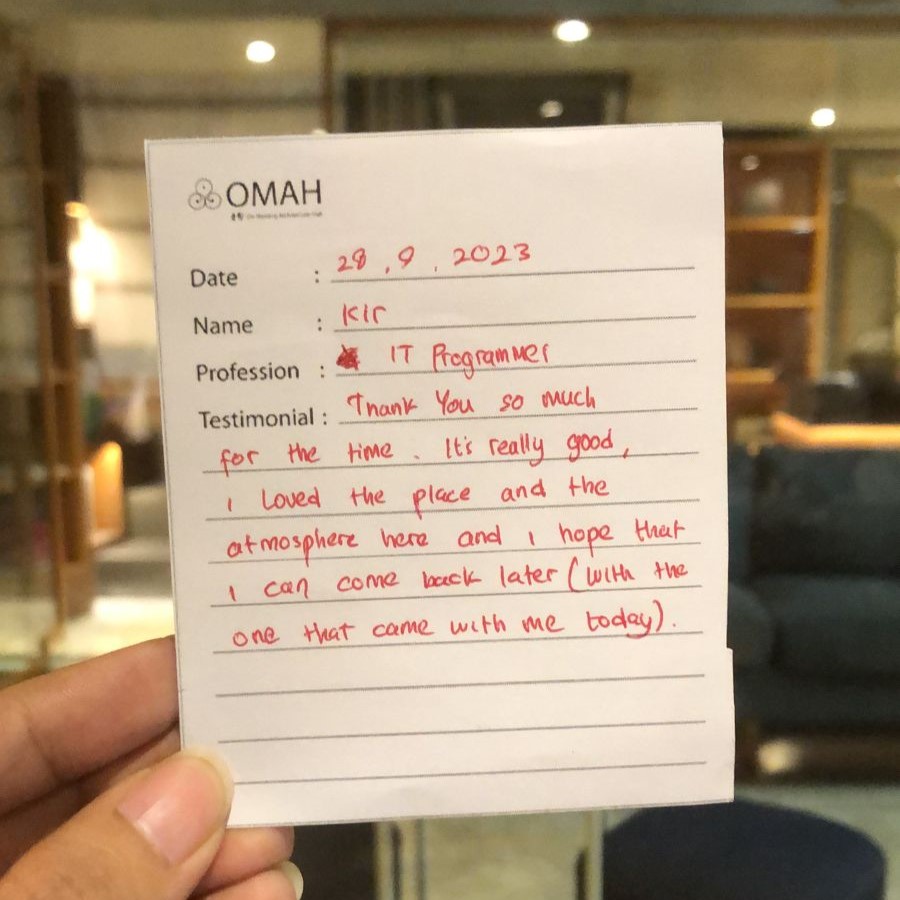 OMAH
Date : 28 . 9 . 2023
Name : Kir
Profession : IT Programmer
Testimonial : Thank You so much
for the time . It's really good,
i Loved the place and the
atmosphere here and i hope that
i can come back later (with the
one that came with me today).